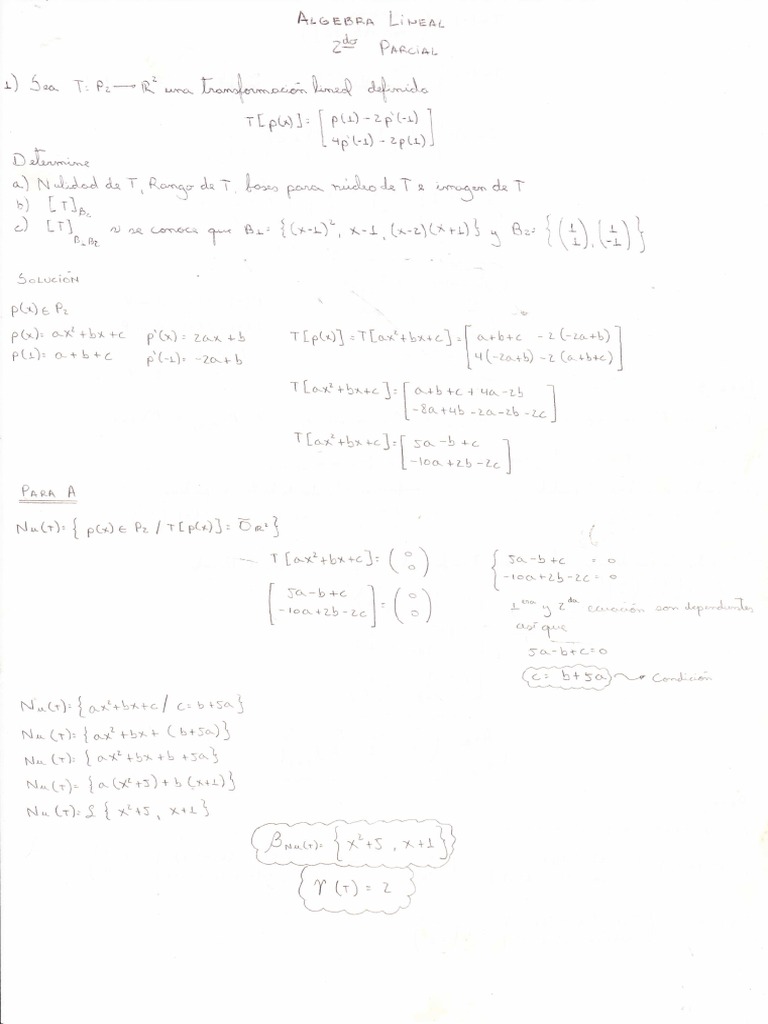 ALGEBRA LINEAL
2do PARCIAL
1) Sea T: P2 → R² una transformación lineal definida
T[p(x)] = [ p(1) - 2p'(-1)
4p'(-1) - 2p(1) ]
Determine
a) Nulidad de T, Rango de T, bases para núcleo de T e imagen de T
b) [T]B2
c) [T]B1B2 si se conoce que B1= {(x-1)², x-1, (x-2)(x+1)} y B2= {(1 1), (1 -1)}
SOLUCIÓN
p(x) ∈ P2
p(x) = ax² + bx + c p'(x) = 2ax + b
p(1) = a + b + c p'(-1) = -2a + b
T[p(x)] = T[ax² + bx + c] = [ a+b+c - 2(-2a+b)
4(-2a+b) - 2(a+b+c) ]
T[ax² + bx + c] = [ a+b+c + 4a - 2b
-8a + 4b - 2a - 2b - 2c ]
T[ax² + bx + c] = [ 5a - b + c
-10a + 2b - 2c ]
PARA A
Nu(T) = { p(x) ∈ P2 / T[p(x)] = ŌR² }
T[ax² + bx + c] = (0 0)
[ 5a - b + c
-10a + 2b - 2c ] = (0 0)
{ 5a - b + c = 0
-10a + 2b - 2c = 0
1era y 2da ecuación son dependientes
así que
5a - b + c = 0
c = b + 5a → Condición
Nu(T) = { ax² + bx + c / c = b + 5a }
Nu(T) = { ax² + bx + (b + 5a) }
Nu(T) = { ax² + bx + b + 5a }
Nu(T) = { a(x² + 5) + b(x+1) }
Nu(T) = £ { x² + 5, x+1 }
βNu(T) = { x² + 5, x+1 }
γ(T) = 2